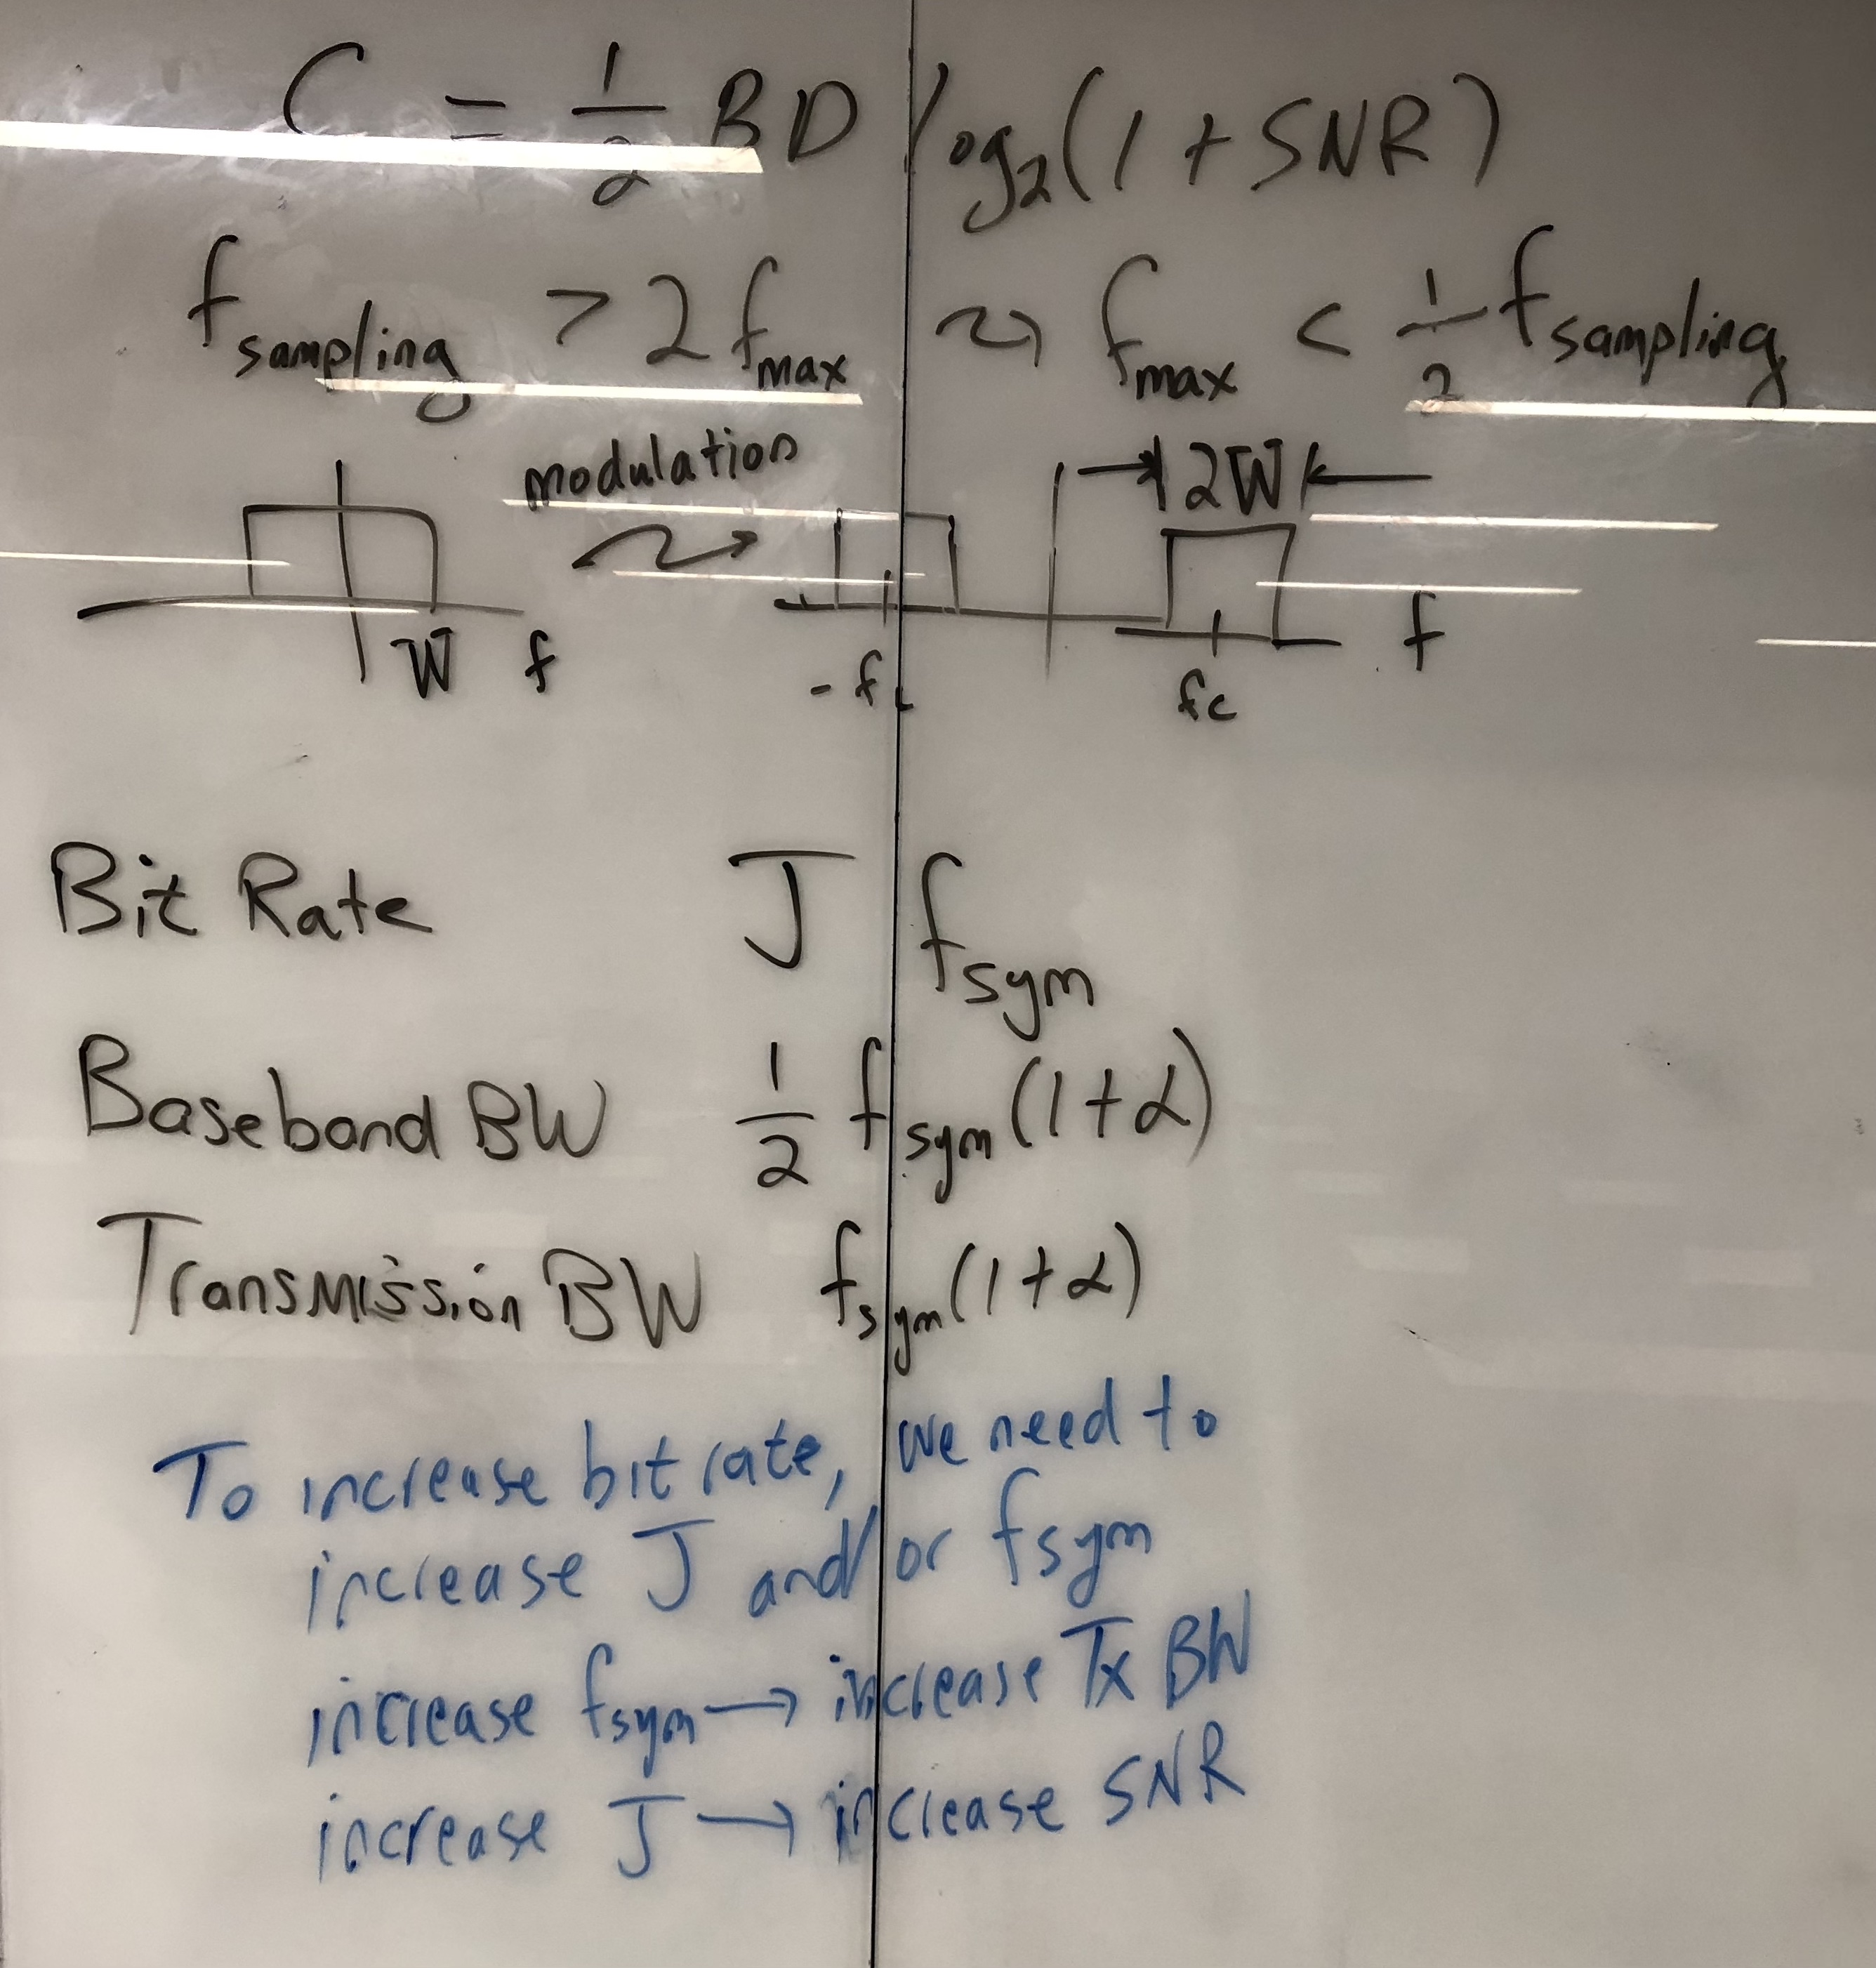 C = 1/2 BD log₂(1 + SNR)
f sampling > 2 f max ⤳ f max < 1/2 f sampling
modulation
2W
W f
-fc fc f
Bit Rate J f sym
Baseband BW 1/2 f sym (1+α)
Transmission BW f sym (1+α)
To increase bit rate, we need to
increase J and/or fsym
increase fsym → increase Tx BW
increase J → increase SNR